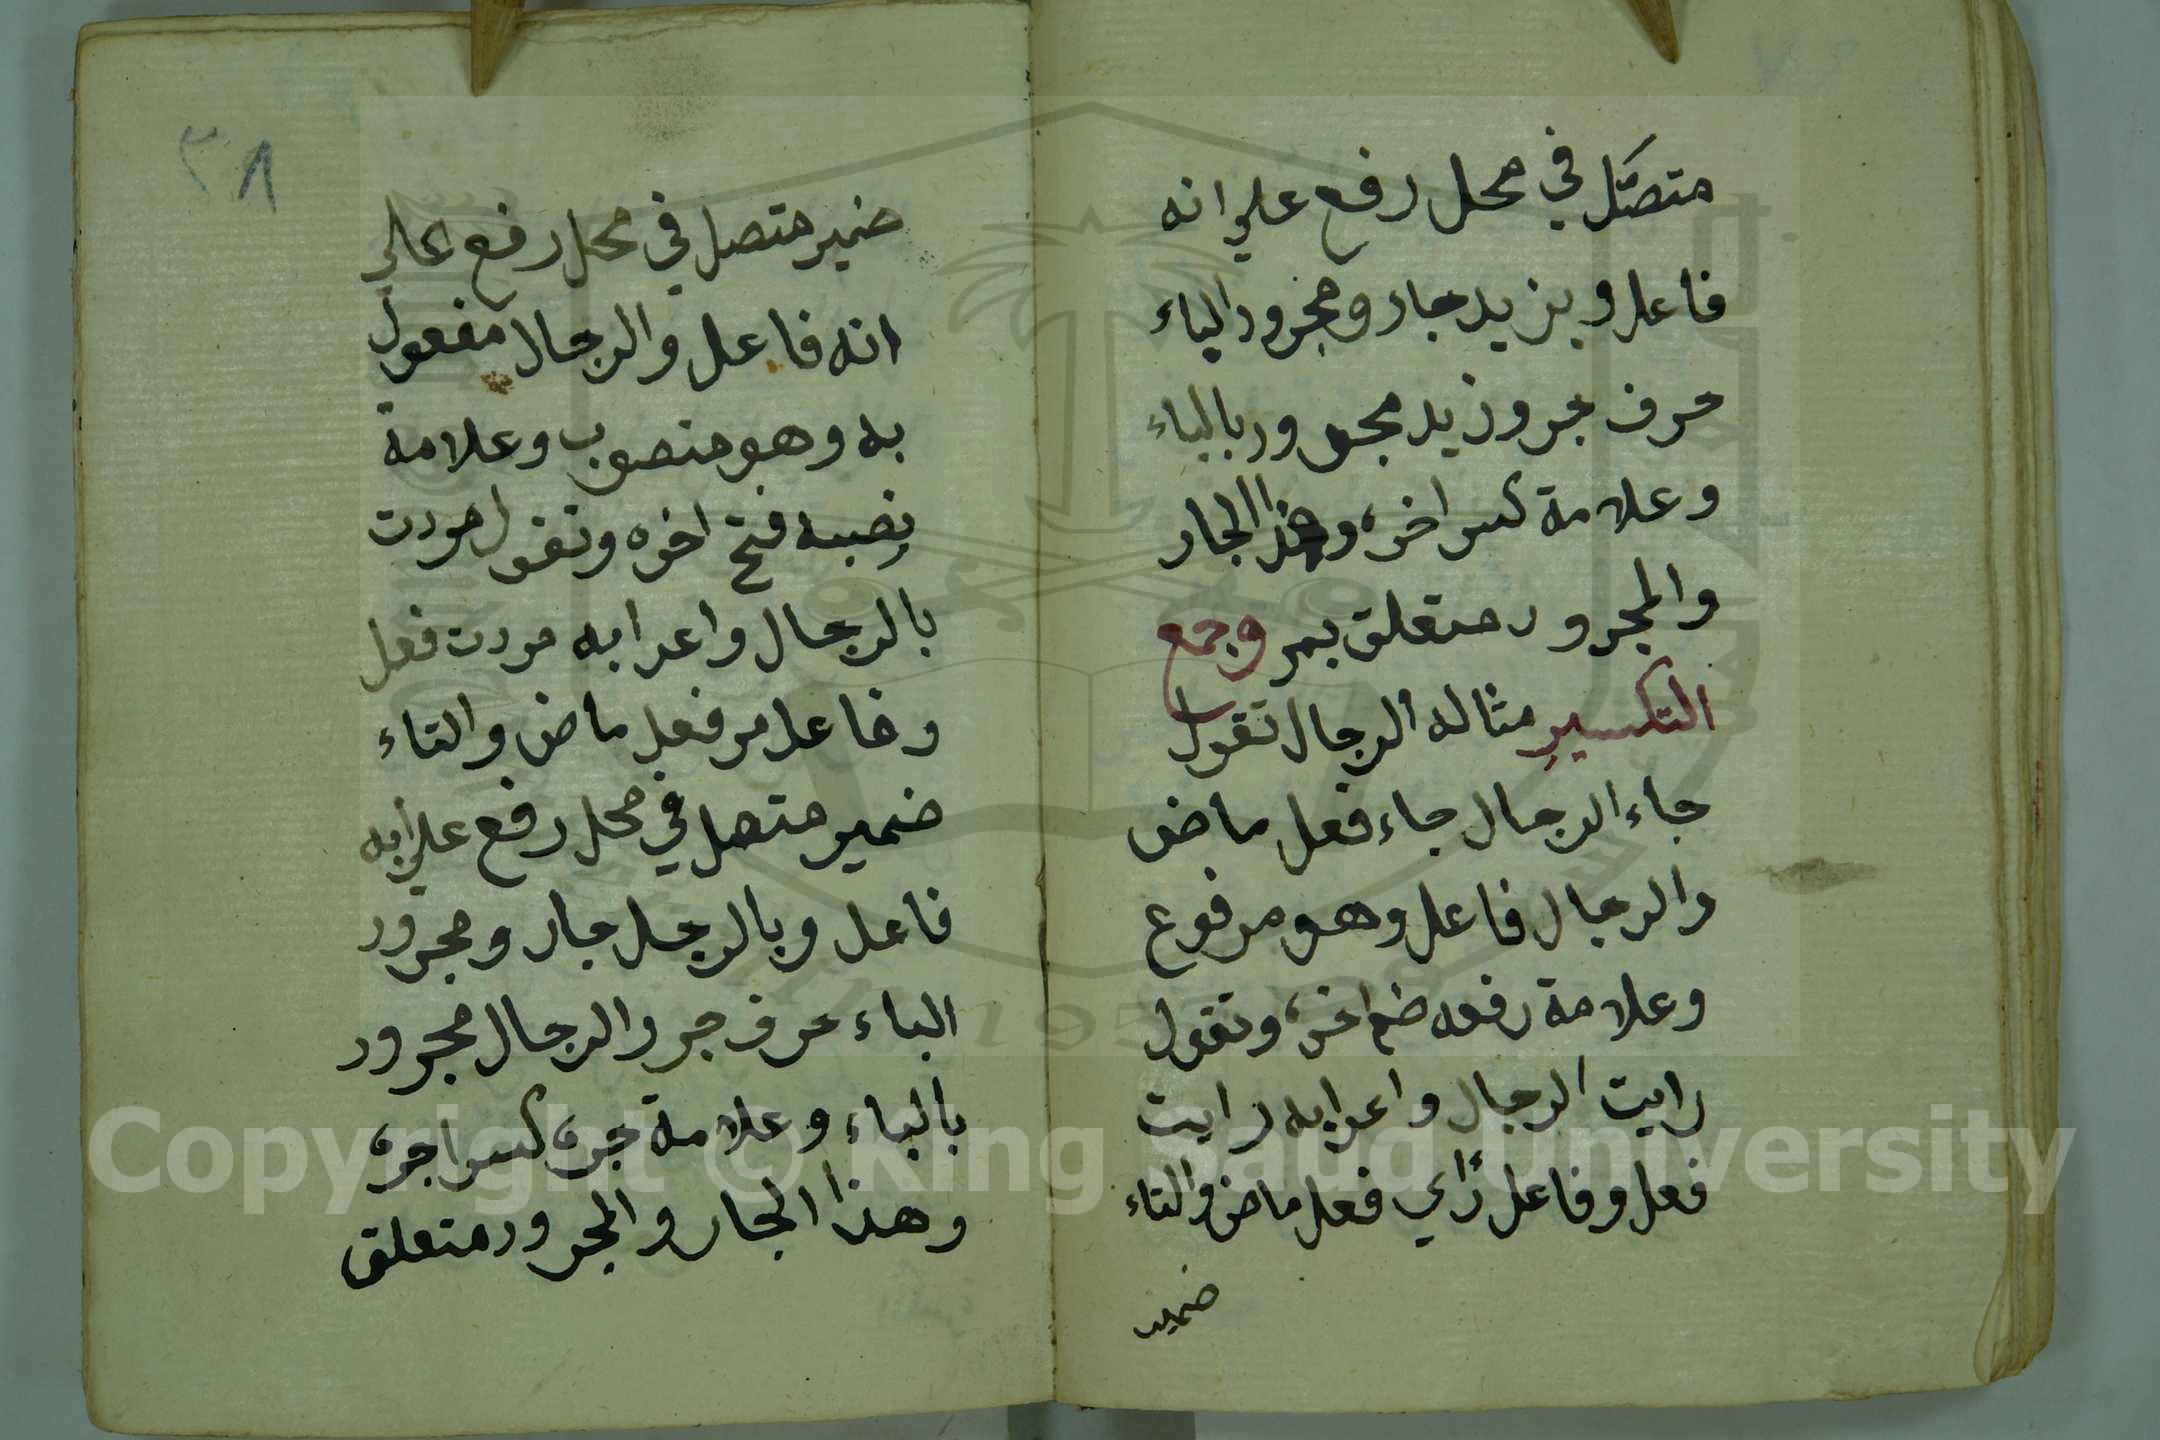 متصل في محل رفع علي انه
فاعل وبزيد جار ومجرور الباء
حرف جر وزيد مجرور بالباء
وعلامة كسر اخره وهذا الجار
والمجرور متعلق بمر وجمع
التكسير مثاله الرجال تقول
جاء الرجال جاء فعل ماض
والرجال فاعل وهو مرفوع
وعلامة رفعه ضم اخره وتقول
رايت الرجال واعرابه رايت
فعل وفاعل رأي فعل ماض والتاء
ضمير
٣٨
ضمير متصل في محل رفع علي
انه فاعل والرجال مفعول
به وهو منصوب وعلامة
نصبه فتح اخره وتقول مررت
بالرجال واعرابه مررت فعل
وفاعل مر فعل ماض والتاء
ضمير متصل في محل رفع علي انه
فاعل وبالرجل جار ومجرور
الباء حرف جر والرجال مجرور
بالباء وعلامة جره كسر اخره
وهذا الجار والمجرور متعلق
Copyright © King Saud University
1957